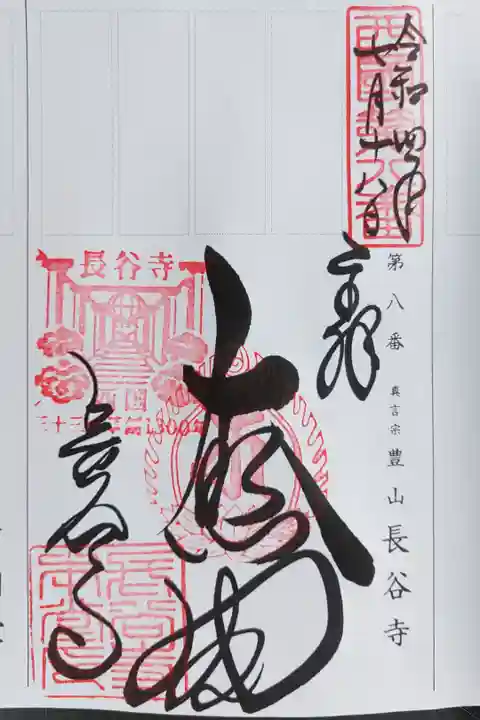 令和四年
七月十八日
西国第八番
第八番 真言宗 豊山 長谷寺
奉拝
大悲閣
長谷寺
長谷寺
西国
三十三所草創1300年